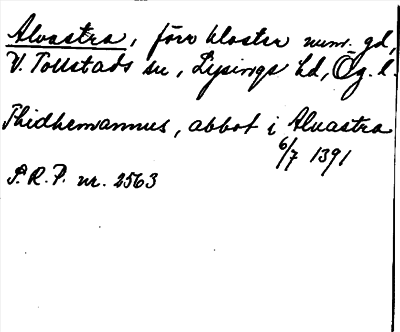 Alvastra, förr kloster num. gd,
V. Tollstads sn, Lysings hd, Ög. l.
Thidhemannus, abbot i Alvastra
6/7 1391
S.R.P. nr. 2563